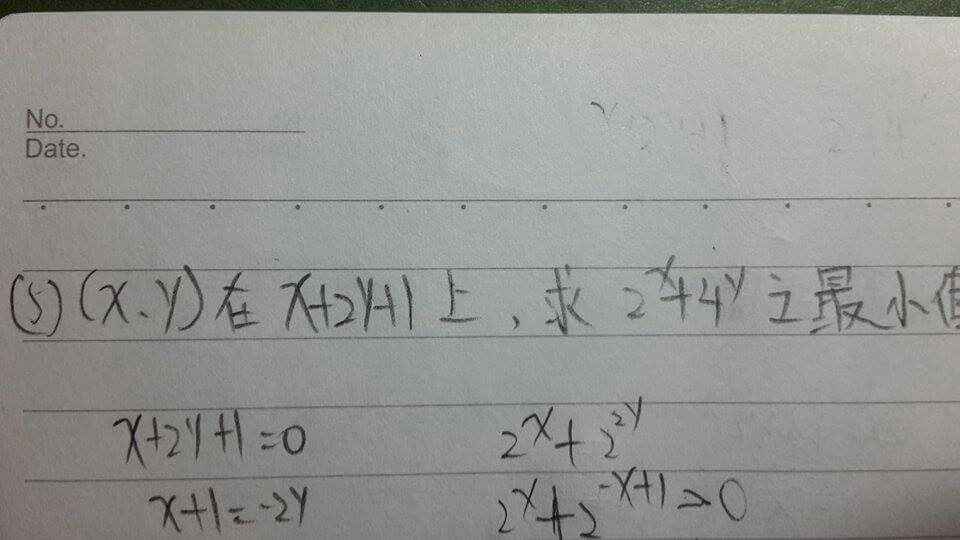 No.
Date.
(5) (x、y) 在 x+2y+1 上，求 2^x+4^y 之最小值
x+2y+1=0
2^x+2^2y
x+1=-2y
2^x+2^-x+1 ≥0